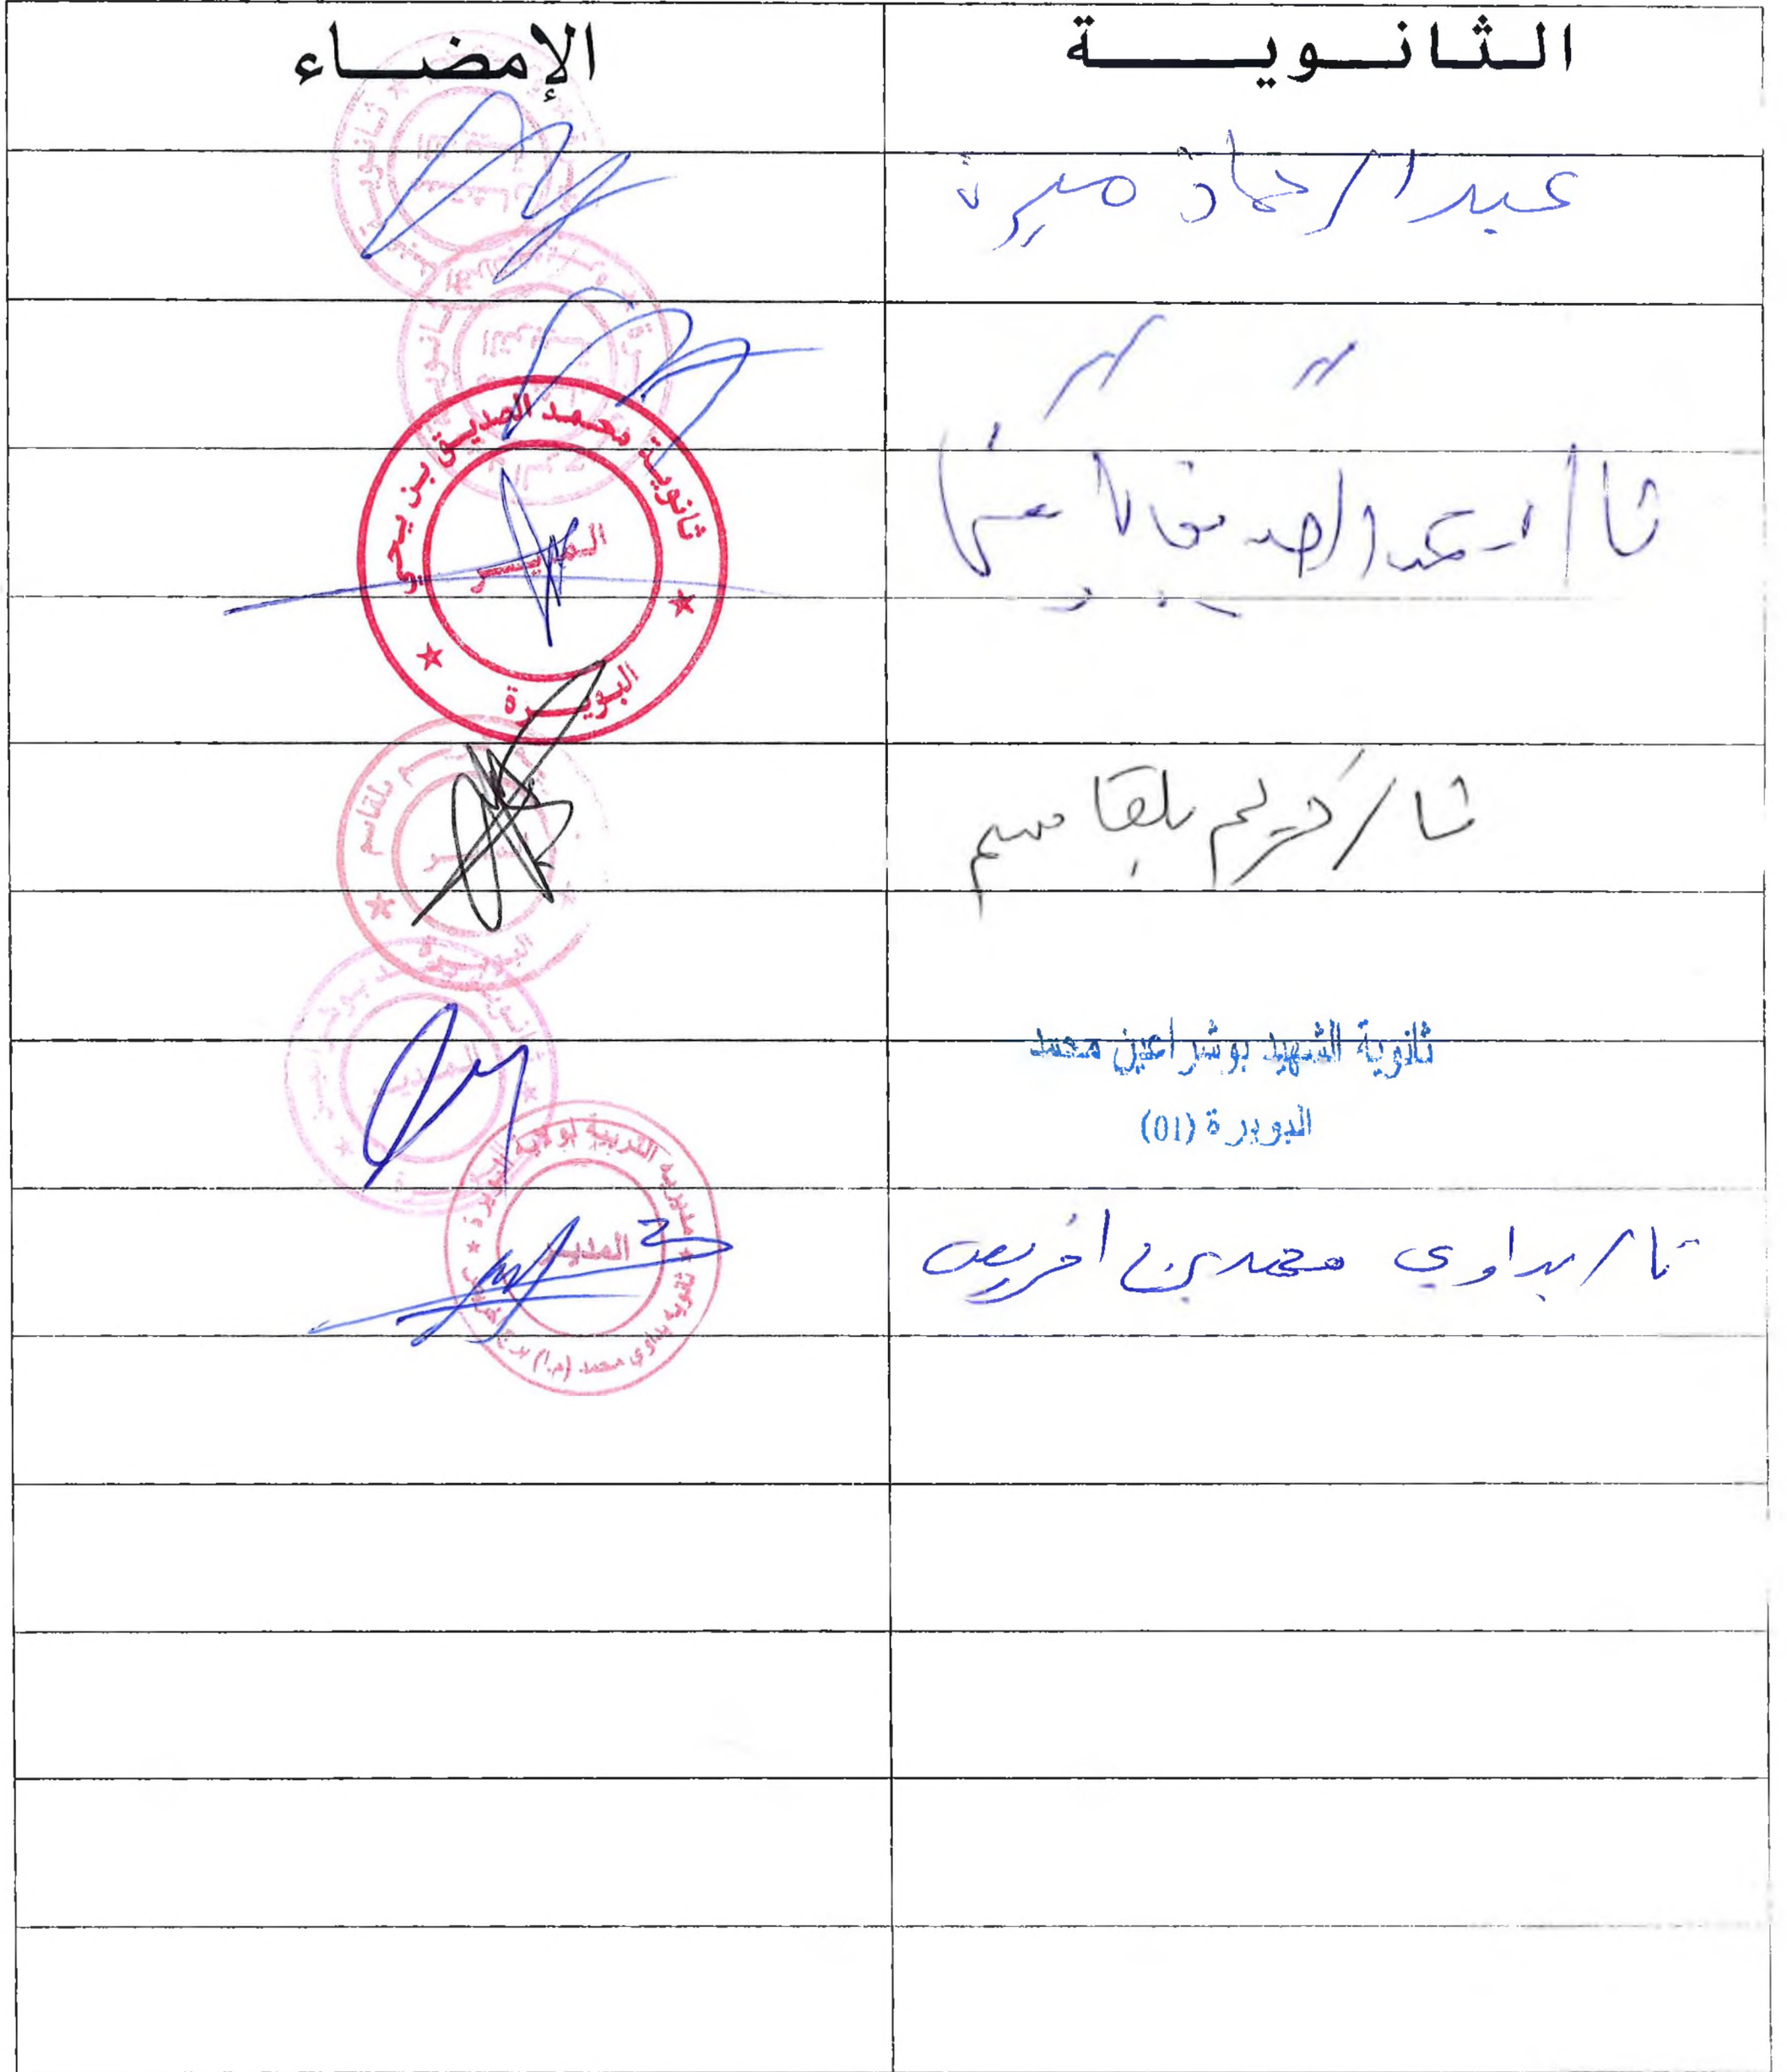 الثانوية
الإمضاء
عبد الرحمان ميرة
〃 〃
ثا / محمد الصديق
بن
ثانوية محمد الصديق بن يحي
المدير
البويرة
ثا / كريم بلقاسم
بلقاسم
البويرة
ثانوية الشهيد بوشراعين محمد
البويرة (01)
المدير
ثا / بداوي محمد برج اخريص
مديرية التربية لولاية البويرة
المدير
ثانوية بداوي محمد (م.ا) برج